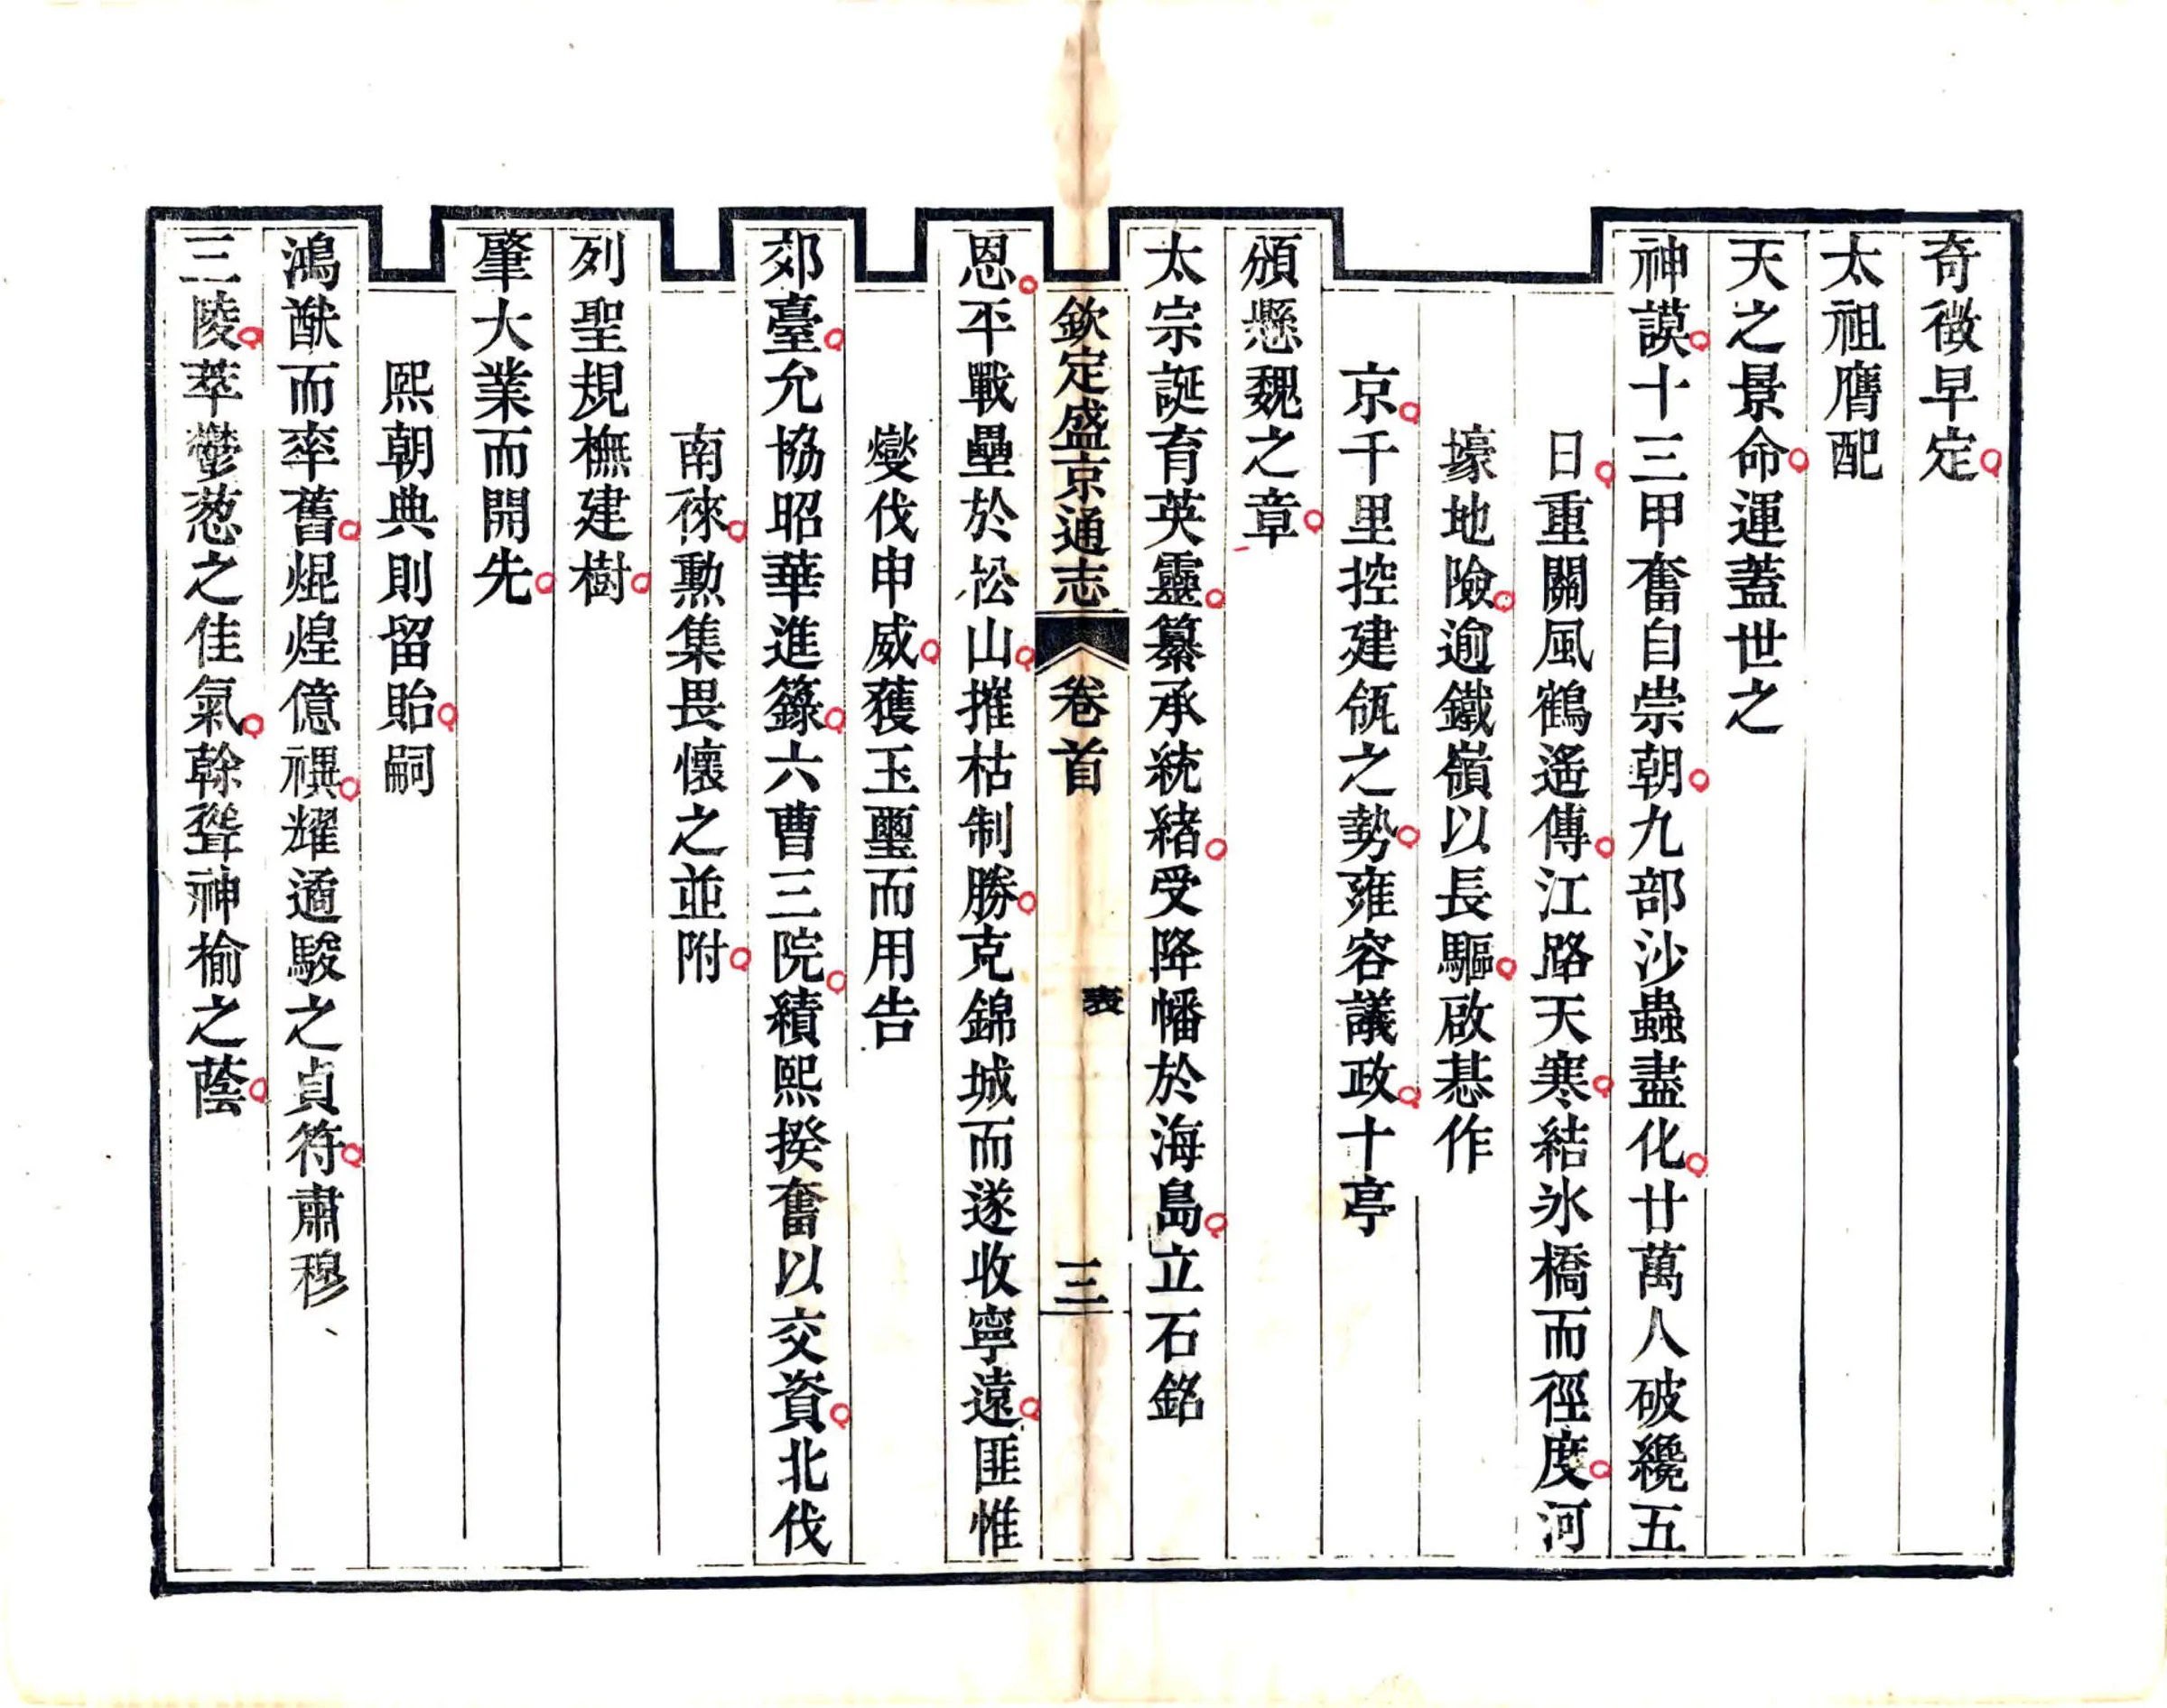 奇徵早定
太祖膺配
天之景命運蓋世之
神謨十三甲奮自崇朝九部沙蟲盡化廿萬人破纔五
日重關風鶴遙傳江路天寒結氷橋而徑度河
壕地險逾鐵嶺以長驅啟基作
京千里控建瓴之勢雍容議政十亭
頒懸魏之章
太宗誕育英靈纂承統緒受降幡於海島立石銘
欽定盛京通志 卷首 表 三
恩平戰壘於松山摧枯制勝克錦城而遂收寧遠匪惟
燮伐申威獲玉璽而用告
郊臺允協昭華進籙六曹三院績熙揆奮以交資北伐
南徠勲集畏懷之並附
列聖規橅建樹
肇大業而開先
熙朝典則留貽嗣
鴻猷而率舊焜煌億禩耀遹駿之貞符肅穆
三陵萃鬱葱之佳氣榦聳神榆之蔭